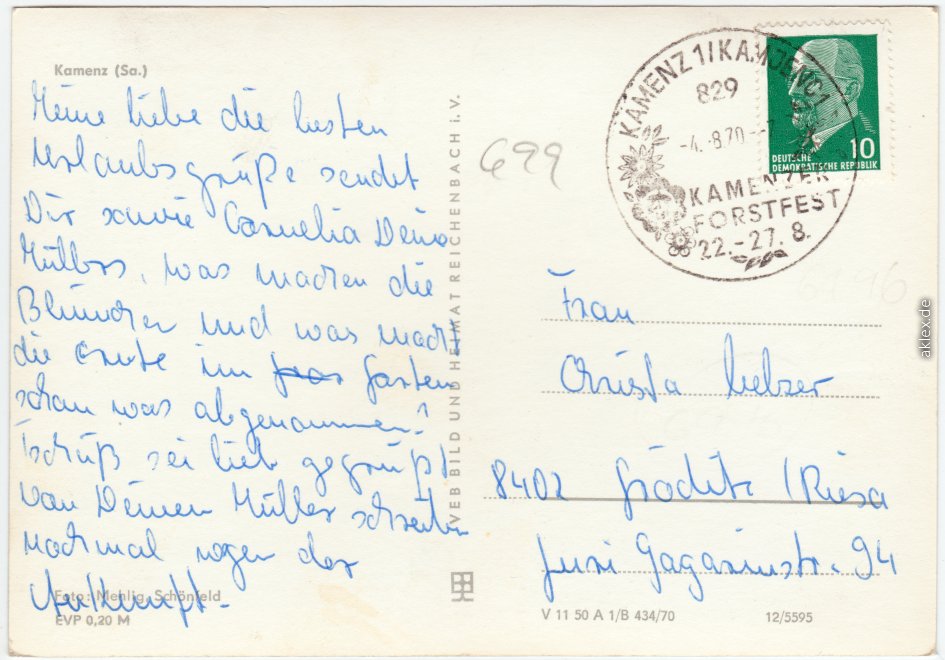 Kamenz (Sa.)
Meine liebe die besten
Urlaubsgrüße sendet
Dir sowie Cornelia Deine
Mütter, was machen die
Blümchen und was macht
die Ernte im Garten
schon was abgenommen?
Tschüß sei lieb gegrüßt
von Deinen Mütter schreibe
nochmal wegen der
Ankunft.
Foto: Mehlig, Schönfeld
EVP 0,20 M
VEB BILD UND HEIMAT REICHENBACH i. V.
699
KAMENZ 1/KAMJENC 1
829
-4.-8.70
KAMENZER
FORSTFEST
22.-27. 8.
10
DEUTSCHE
DEMOKRATISCHE REPUBLIK
Frau
Christa
8402 Gröditz /Riesa
Juri Gagarinstr. 94
V 11 50 A 1/B 434/70
12/5595
aklex.de